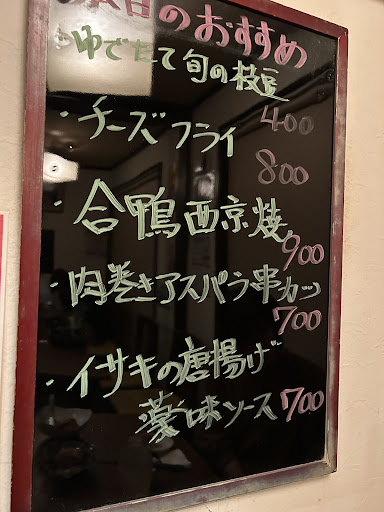 本日のおすすめ
・ゆでたて旬の枝豆
400
・チーズフライ
800
・合鴨西京焼
900
・肉巻きアスパラ串カツ
700
・イサキの唐揚げ
薬味ソース 700